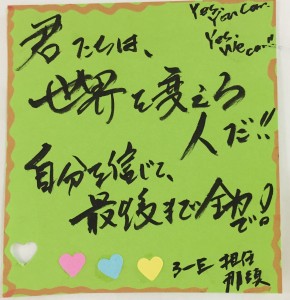 Yes, You Can.
Yes, We can!!
君たちは、
世界を変える
人だ!!
自分を信じて、
最後まで全力で!
3-E 担任
那須